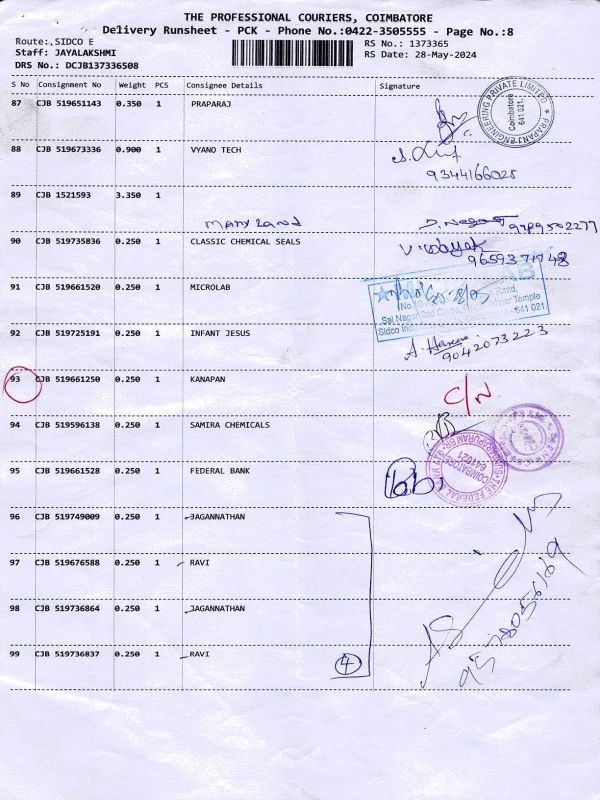 THE PROFESSIONAL COURIERS, COIMBATORE
Delivery Runsheet - PCK - Phone No.:0422-3505555 - Page No.:8
Route:.SIDCO E
Staff: JAYALAKSHMI
DRS No.: DCJB137336508
RS No.: 1373365
RS Date: 28-May-2024
S No Consignment No Weight PCS Consignee Details Signature
87 CJB 519651143 0.350 1 PRAPARAJ
PRAPANJ ENGINEERING PRIVATE LIMITED
Coimbatore
641 021.
88 CJB 519673336 0.900 1 VYANO TECH
9344166028
89 CJB 1521593 3.350 1
90 CJB 519735836 0.250 1 CLASSIC CHEMICAL SEALS
91 CJB 519661520 0.250 1 MICROLAB
Road,
Temple
641 021
92 CJB 519725191 0.250 1 INFANT JESUS
9042073223
93 CJB 519661250 0.250 1 KANAPAN C/N
94 CJB 519596138 0.250 1 SAMIRA CHEMICALS
95 CJB 519661528 0.250 1 FEDERAL BANK
THE FEDERAL
COIMBATORE
641021
96 CJB 519749009 0.250 1 JAGANNATHAN
97 CJB 519676588 0.250 1 RAVI
98 CJB 519736864 0.250 1 JAGANNATHAN
99 CJB 519736837 0.250 1 RAVI
4